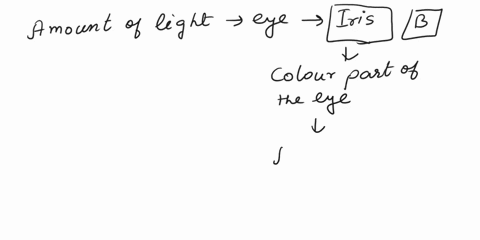 Amount of light → eye → Iris B
↓
Colour part of
the eye
↓